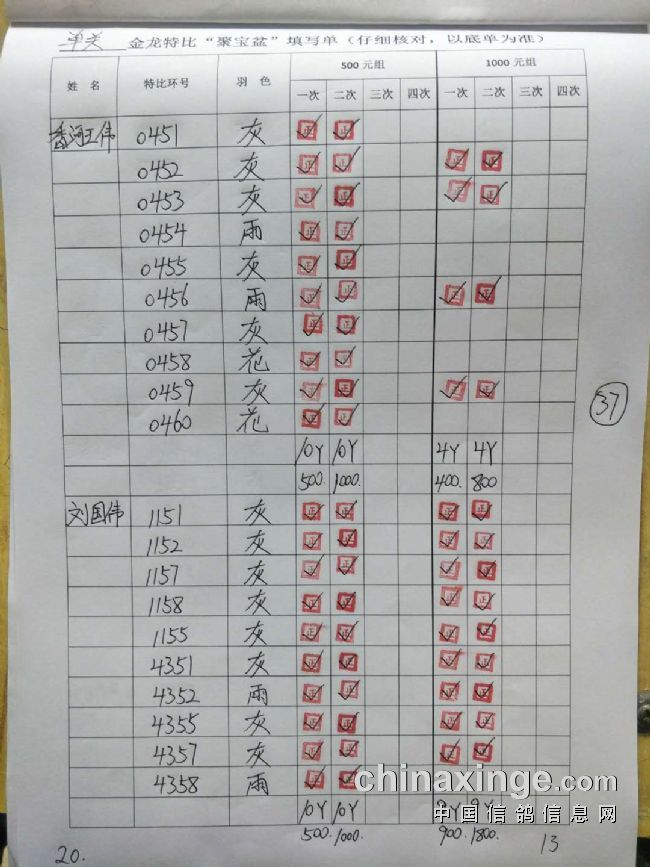 单关 金龙特比“聚宝盆”填写单（仔细核对，以底单为准）
姓 名 特比环号 羽 色 500 元组 1000 元组
一次 二次 三次 四次 一次 二次 三次 四次
香河王伟 0451 灰 正 正
0452 灰 正 正 正 正
0453 灰 正 正 正 正
0454 雨 正 正
0455 灰 正 正
0456 雨 正 正 正 正
0457 灰 正 正
0458 花 正 正
0459 灰 正 正 正 正
0460 花 正 正
10Y 10Y 4Y 4Y
500. 1000. 400. 800
37
刘国伟 1151 灰 正 正 正 正
1152 灰 正 正 正 正
1157 灰 正 正 正 正
1158 灰 正 正 正 正
1155 灰 正 正 正 正
4351 灰 正 正 正 正
4352 雨 正 正 正 正
4355 灰 正 正 正 正
4357 灰 正 正 正 正
4358 雨 正 正
chinaxinge.com
10Y 10Y 9Y 9Y
中国信鸽信息网
500. 1000. 900. 1800.
20. 13